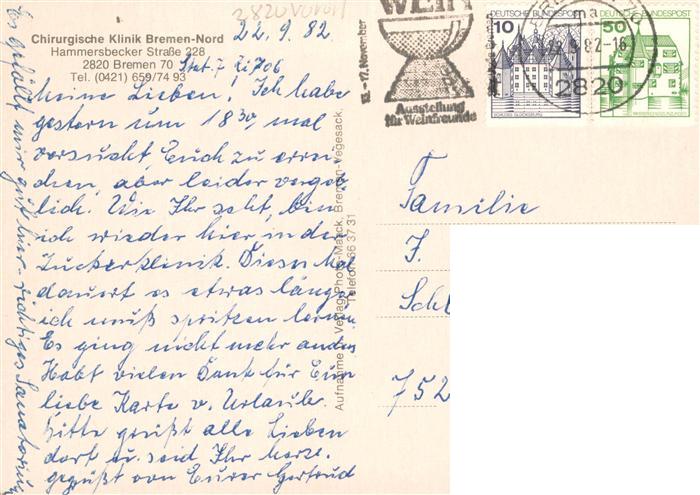 2820 Vorort
22.9.82.
Chirurgische Klinik Bremen-Nord
Hammersbecker Straße 228
2820 Bremen 70
Tel. (0421) 659/74 93
Stat. 7 Zi 706
Meine Lieben! Ich habe
gestern um 18 30 mal
versucht, Euch zu errei
chen, aber leider vergeb
lich. Wie Ihr seht, bin
ich wieder hier in der
Zuckerklinik. Diesmal
dauert es etwas länger
ich muß spritzen lernen
Es ging nicht mehr anders
Habt vielen Dank für Eure
liebe Karte v. Urlaub.
Bitte grüßt alle Lieben
dort u. seid Ihr herzl.
gegrüßt von Eurer Gertrud
Es gefällt mir gut hier - richtiges Sanatorium
Aufnahme u. Verlag Photo-Maack, Bremen-Vegesack,
Telefon 66 37 31
WEIN
13.-17. November
Ausstellung
für Weinfreunde
DEUTSCHE BUNDESPOST
10
SCHLOSS GLÜCKSBURG
DEUTSCHE BUNDESPOST
50
ma
22.9.82-16
2820
Familie
J.
Schl
752